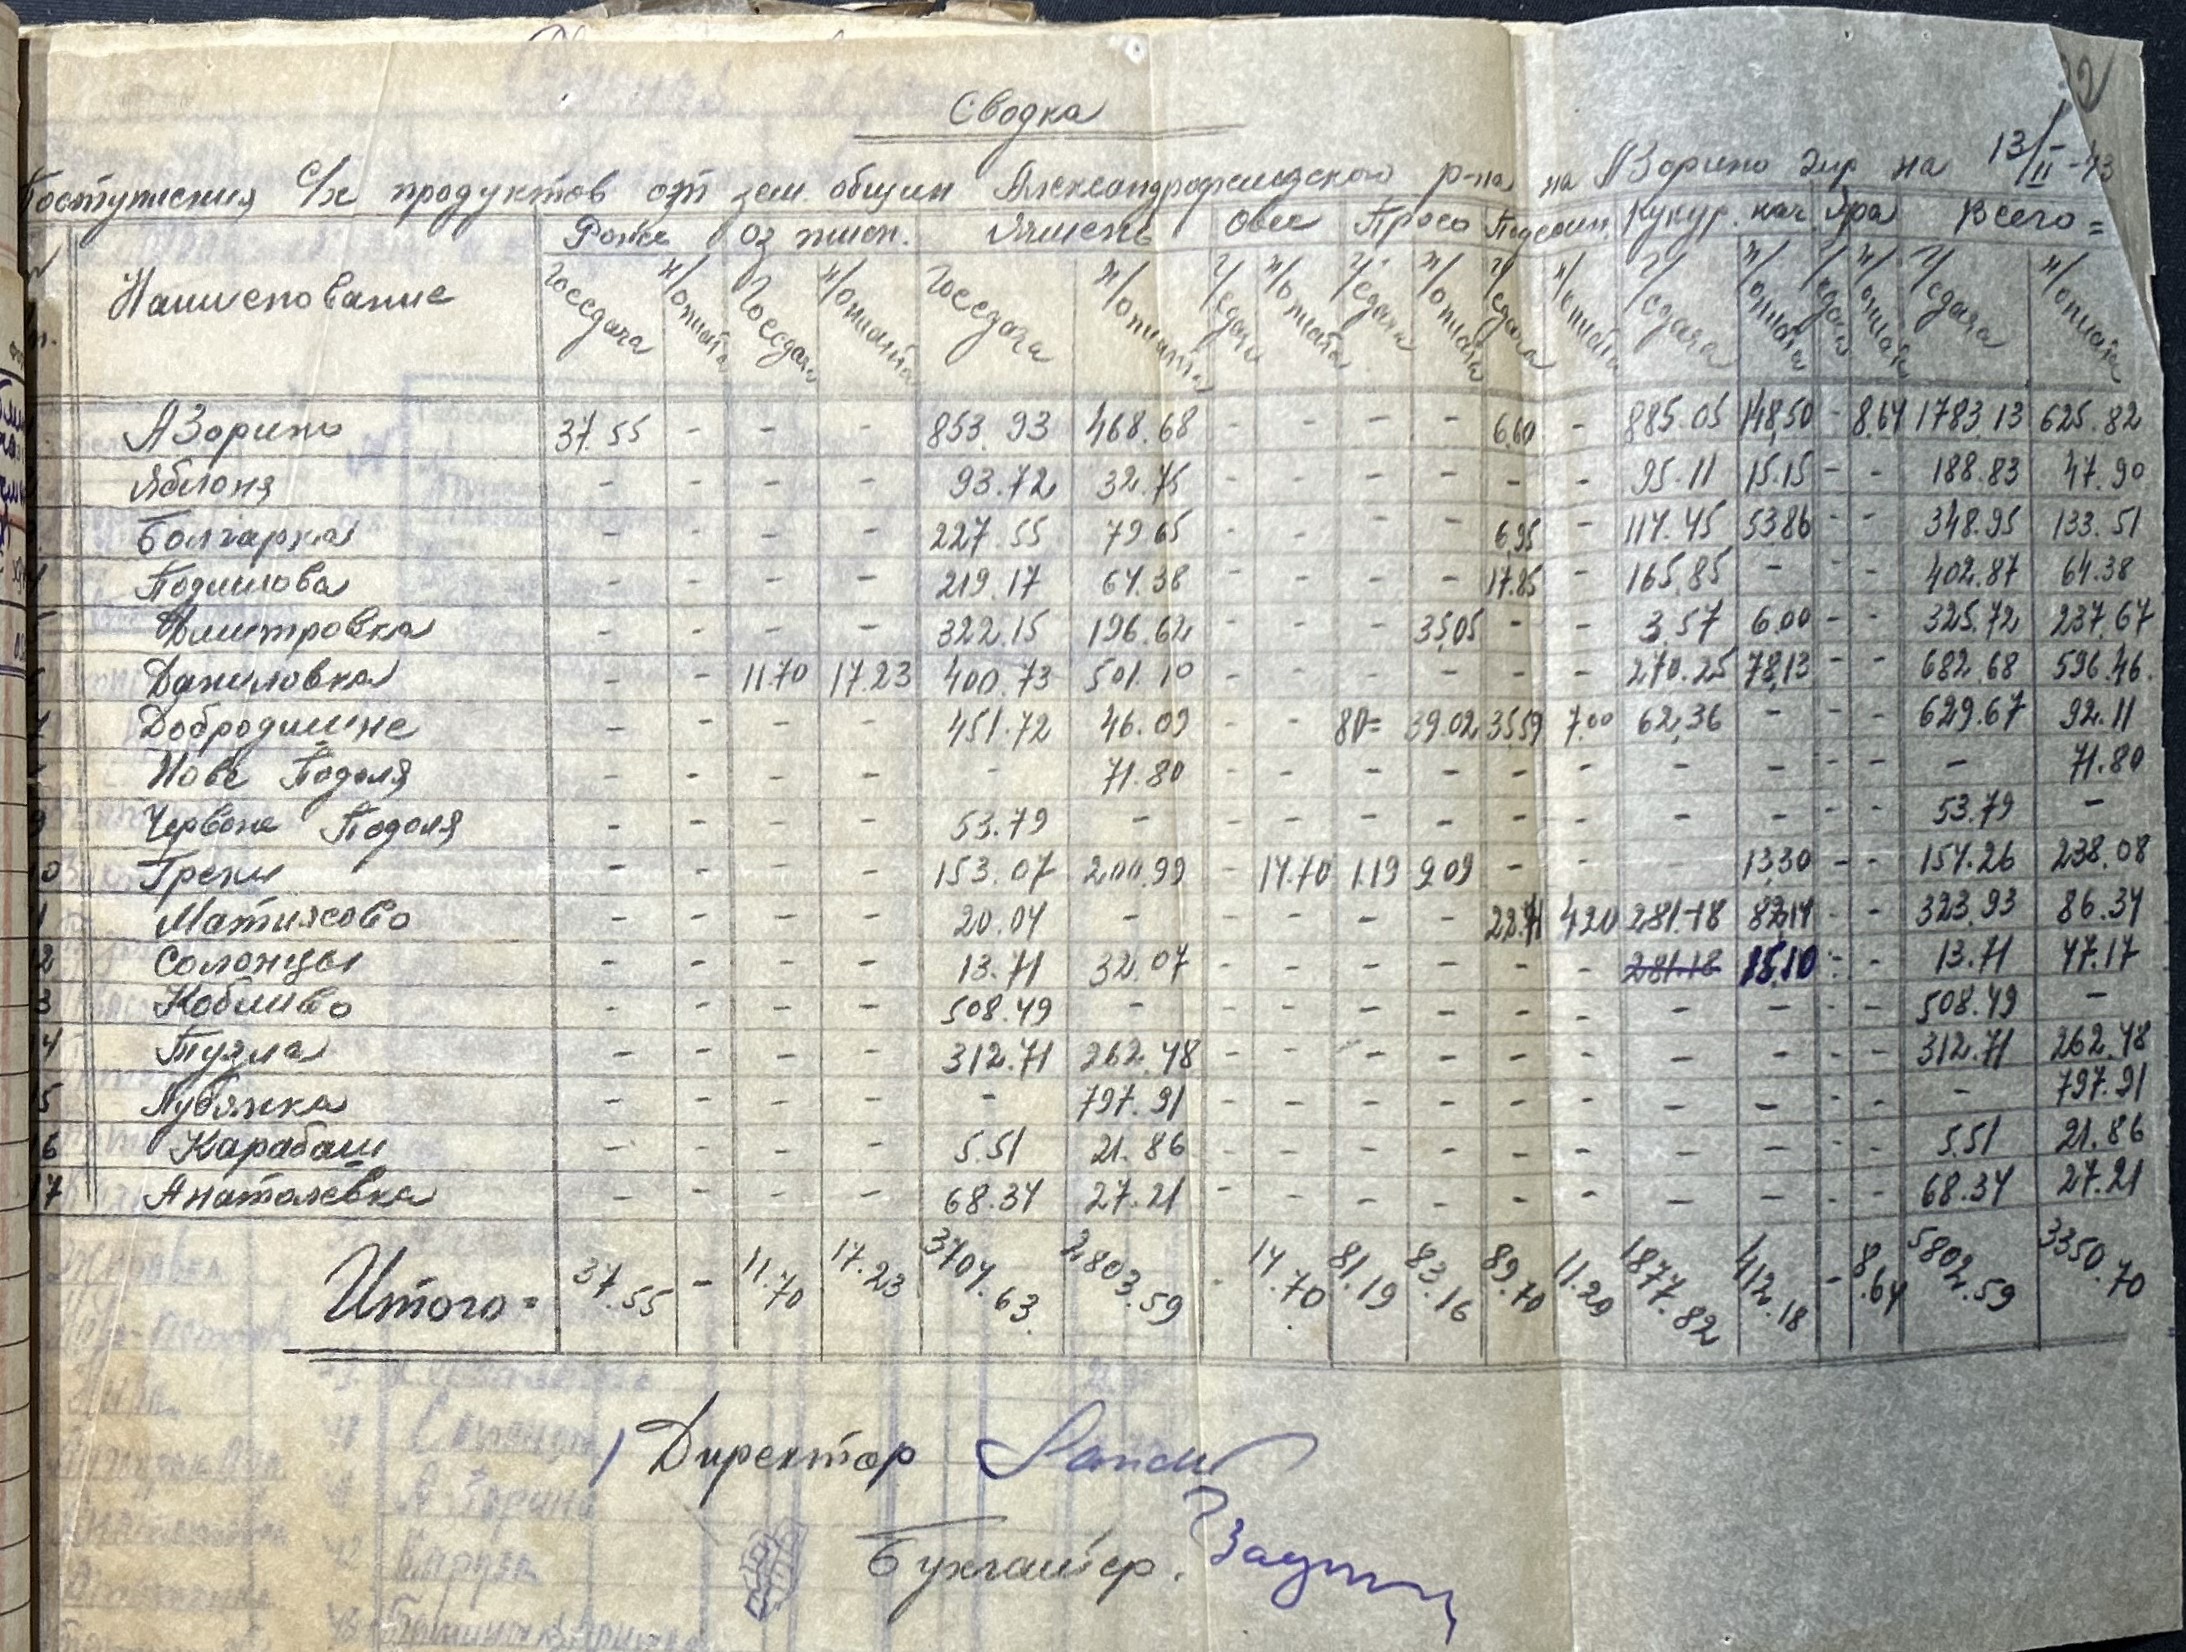 Сводка
Поступления с/х продуктов от зем. общин Александрфельдского р-на на А Зорино на 13/II-43
Наименование Рожь Оз пшен. Ячмень Овес Просо Подсолн. Кукур. кач. Всего =
Госсдача н/оплата Госсдача н/оплата Госсдача н/оплата г/сдача н/оплата г/сдача н/оплата г/сдача н/оплата г/сдача н/оплата г/сдача н/оплата г/сдача н/оплата
А Зорино 37.55 - - - 853.93 468.68 - - - - 6,60 - 885.05 148,50 - 8.64 1783.13 625.82
Яблоня - - - - 93.72 32.75 - - - - - - 95.11 15.15 - - 188.83 47.90
Болгарка - - - - 227.55 79.65 - - - - 6,95 - 114.45 53.86 - - 348.95 133.51
- - - - 219.17 64.38 - - - - 17.85 - 165.85 - - - 402.87 64.38
Дмитровка - - - - 322.15 196.62 - - - 35,05 - - 3.57 6.00 - - 325.72 237.67
Даниловка - - 11.70 17.23 400.73 501.10 - - - - - - 270.25 78,13 - - 682.68 596.46
- - - - 451.72 46.09 - - 80= 39.02 35,59 7.00 62,36 - - - 629.67 92.11
Нове Подоля - - - - - 71.80 - - - - - - - - - - - 71.80
9 Червоне Подоля - - - - 53.79 - - - - - - - - - - - 53.79 -
10 Греки - - - - 153.07 200.99 - 14.70 1.19 9.09 - - - 13,30 - - 154.26 238.08
1 Матиясово - - - - 20.04 - - - - - 22.71 4.20 281.18 82,14 - - 323.93 86.34
2 Солонцы - - - - 13.71 32.07 - - - - - - 281.18 15,10 - - 13.71 47.17
3 Коблево - - - 508.49 - - - - - - - - - - - 508.49 -
4 Тузла - - - - 312.71 262.48 - - - - - - - - - - 312.71 262.48
5 Лубянка - - - - - 797.91 - - - - - - - - - - - 797.91
6 Карабаш - - - - 5.51 21.86 - - - - - - - - - - 5.51 21.86
17 Анатолевка - - - - 68.34 27.21 - - - - - - - - - - 68.34 27.21
Итого = 37.55 - 11.70 17.23 3704.63 2803.59 - 14.70 81.19 83.16 89.70 11.20 1877.82 412.18 - 8.64 5802.59 3350.70
Директор
Бухгалтер.